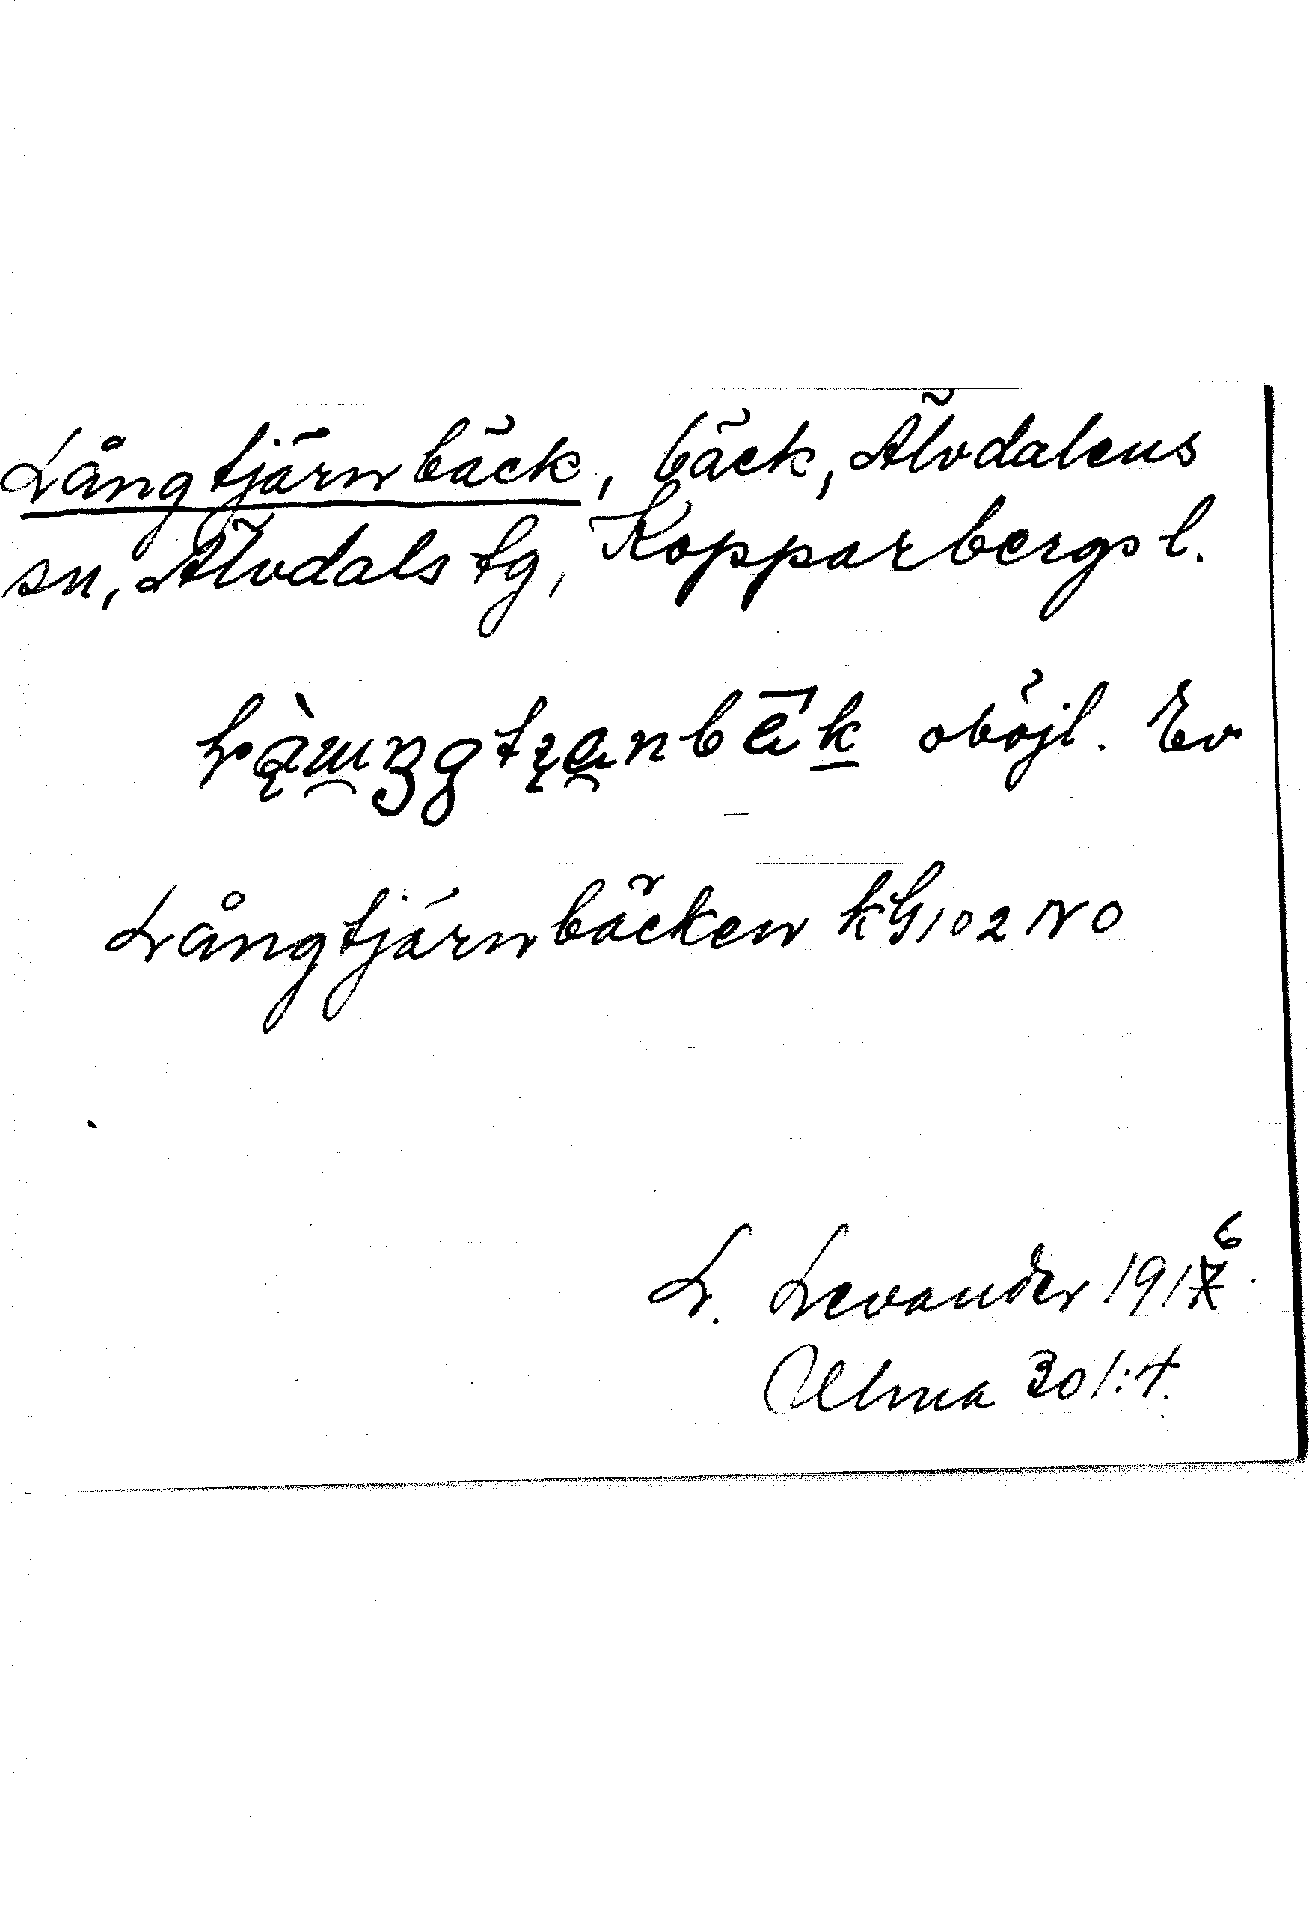 Långtjärnbäck, bäck, Älvdalens
sn, Älvdals tg, Kopparbergs l.
oböjl. Ev
Långtjärnbäcken kG 102 NO
6
L. Levander 1917
Ulma 301:4.